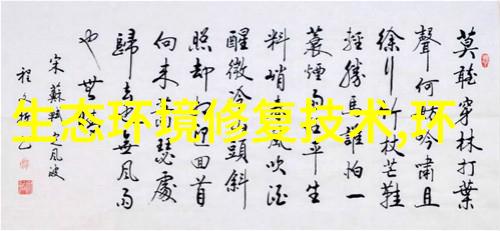 生态环境修复技术,环
莫聽穿林打葉
聲何妨吟嘯且
徐行竹杖芒鞋
輕勝馬誰怕一
蓑煙雨任平生
料峭風吹酒
醒微冷山頭斜
照却迎回首
向来瑟處
歸去無風雨
也無
宋蘇軾定风波